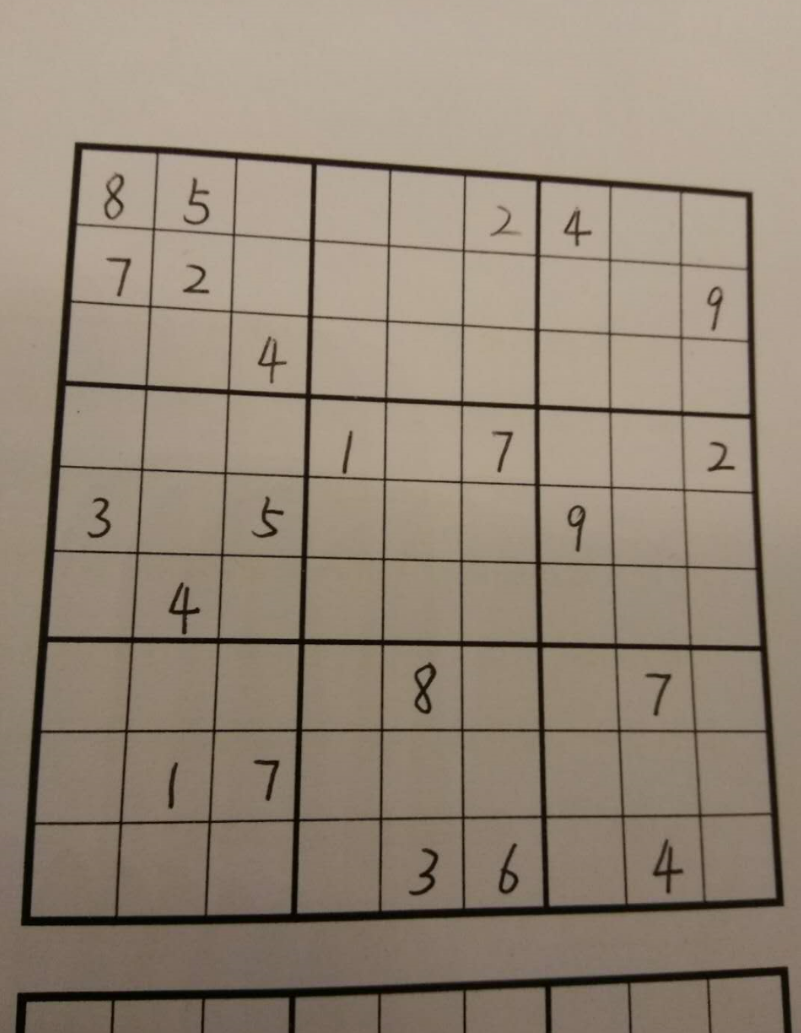 8 5 2 4
7 2 9
4
1 7 2
3 5 9
4
8 7
1 7
3 6 4